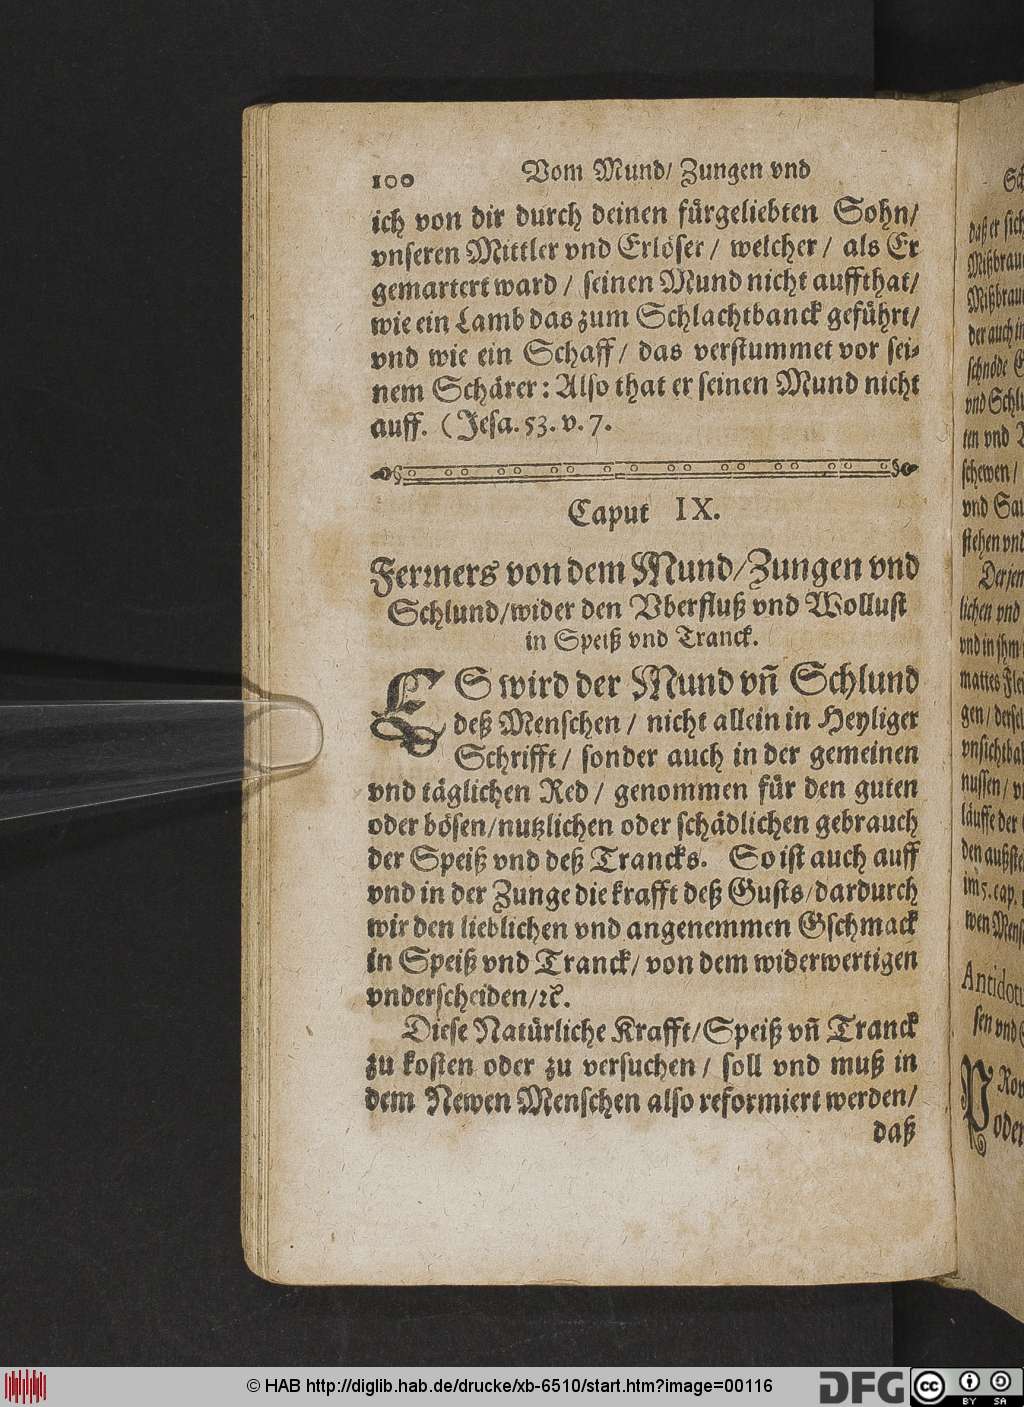 100 Vom Mund/ Zungen vnd
ich von dir durch deinen fürgeliebten Sohn/
vnseren Mittler vnd Erlöser / welcher / als Er
gemartert ward / seinen Mund nicht auffthat/
wie ein Lamb das zum Schlachtbanck geführt/
vnd wie ein Schaff / das verstummet vor sei-
nem Schärer: Also that er seinen Mund nicht
auff. (Jesa. 53. v. 7.
Caput IX.
Ferrners von dem Mund/Zungen vnd
Schlund/wider den Vberfluß vnd Wollust
in Speiß vnd Tranck.
ES wird der Mund vñ Schlund
deß Menschen / nicht allein in Heyliger
Schrifft / sonder auch in der gemeinen
vnd täglichen Red / genommen für den guten
oder bösen/nutzlichen oder schädlichen gebrauch
der Speiß vnd deß Trancks. So ist auch auff
vnd in der Zunge die krafft deß Gusts/dardurch
wir den lieblichen vnd angenemmen Gschmack
in Speiß vnd Tranck/ von dem widerwertigen
vnderscheiden/ꝛc.
Diese Natürliche Krafft/Speiß vñ Tranck
zu kosten oder zu versuchen / soll vnd muß in
dem Newen Menschen also reformiert werden/
daß
daß er sich
der auch in
vnd Schlu
ten vnd
schewen /
vnd Sau
stehen vnd
Derjen
lichen vnd
vnd in jhm
mattes Flei
gen / dersel
vnsichtbar
nussen / v
läuffe der
den außste
im 5. cap.
wen Mens
Antidotu
sen vnd
oder
© HAB http://diglib.hab.de/drucke/xb-6510/start.htm?image=00116
DFG
cc
BY SA